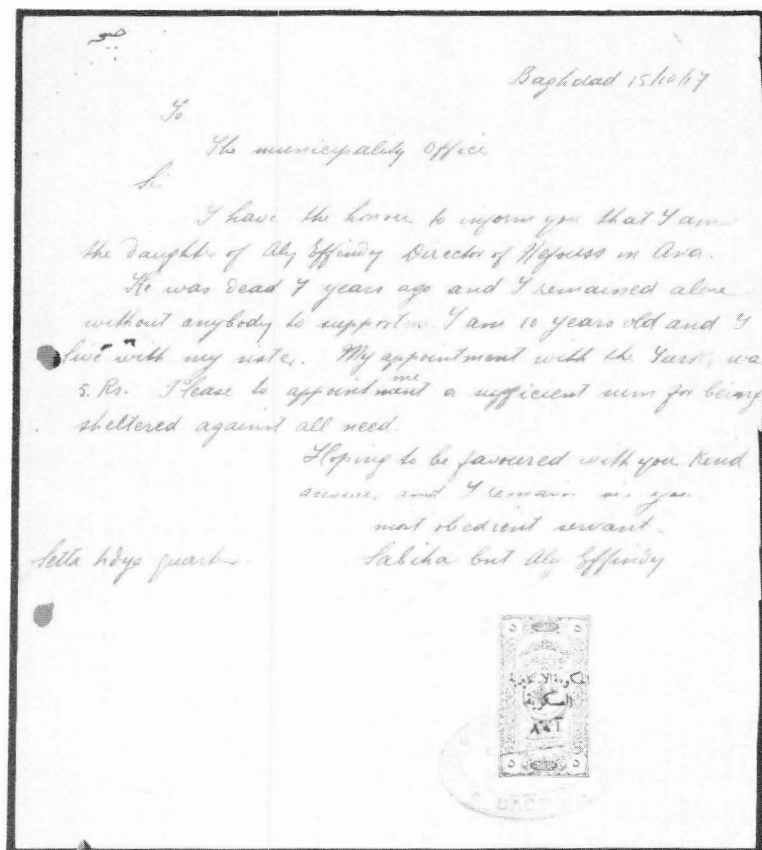 Baghdad 15/10/17
To
The municipality Office
Sir
I have the honour to inform you that I am
the daughter of Aly Effindy Director of Nefouss in Ana.
He was dead 7 years ago and I remained alone
without anybody to support me I am 10 years old and I
live with my sister. My appointment with the Turks was
5. Rs. Please to appointment me a sufficient sum for being
sheltered against all need.
Hoping to be favoured with you kind
answer, and I remain
most obedient servant.
Setta quarter. Sabiha bint Aly Effindy
٥ ٥
العسكرية
٥ ٥